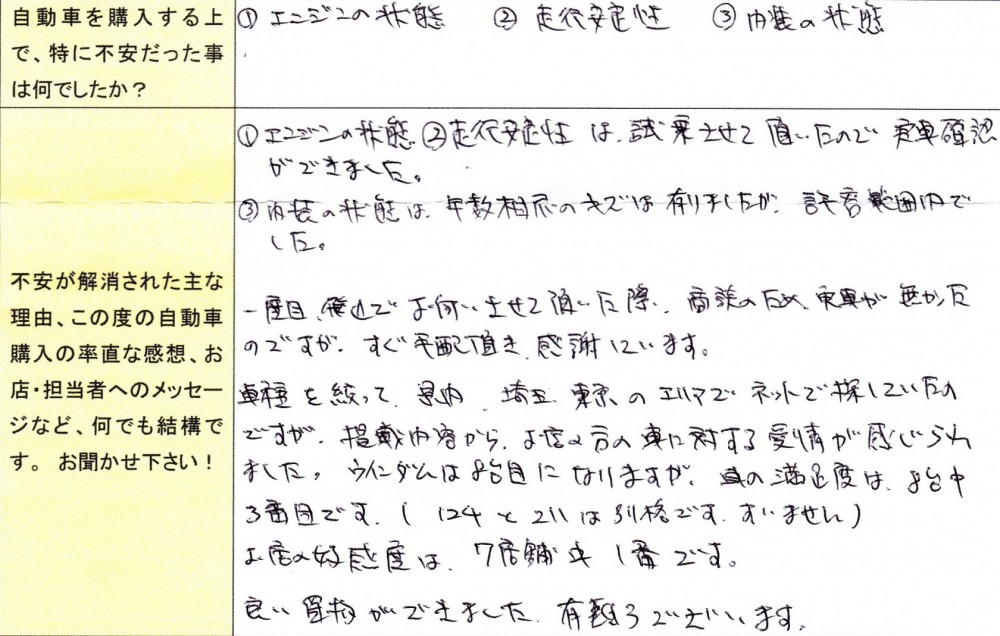 自動車を購入する上
で、特に不安だった事
は何でしたか？
① エンジンの状態　② 走行安定性　③ 内装の状態
不安が解消された主な
理由、この度の自動車
購入の率直な感想、お
店・担当者へのメッセー
ジなど、何でも結構で
す。 お聞かせ下さい！
① エンジンの状態 ②走行安定性 は、試乗させて頂いたので 実車確認
ができました。
③ 内装の状態は、年数相応のキズは有りましたが、許容範囲内で
した。
一度目、飛込でお伺いさせて頂いた際、商談のため、実車が無かった
のですが、すぐ手配頂き、感謝しています。
車種を絞って、県内、埼玉、東京のエリアでネットで探していたの
ですが、掲載内容から、お店の方の車に対する愛情が感じられ
ました。ウインダムは8台目になりますが、車の満足度は、8台中
3番目です。( 124と211は別格です。すいません)
お店の好感度は、7店舗中 1番です。
良い買物ができました。有難うございます。